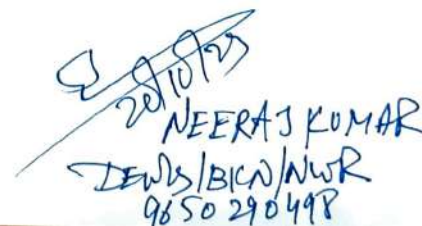 20/10/25
NEERAJ KUMAR
DEN/S/BKN/NWR
9650290498